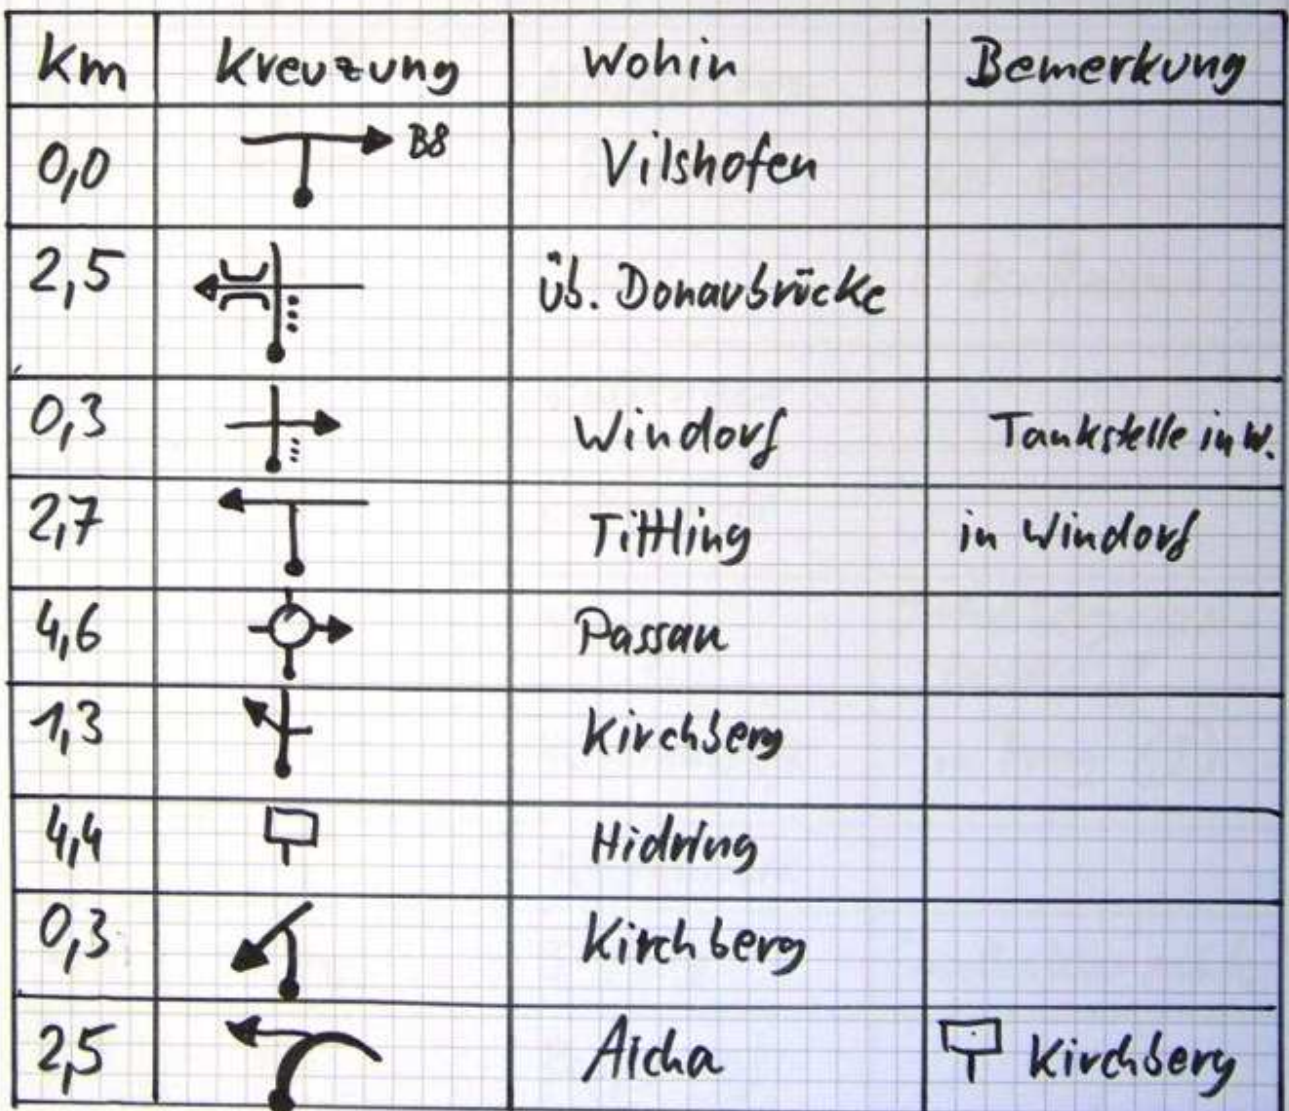 Km Kreuzung Wohin Bemerkung
0,0 B8 Vilshofen
2,5 üb. Donaubrücke
0,3 Windorf Tankstelle in W.
2,7 Tittling in Windorf
4,6 Passau
1,3 Kirchberg
4,4
0,3 Kirchberg
2,5 Aicha Kirchberg